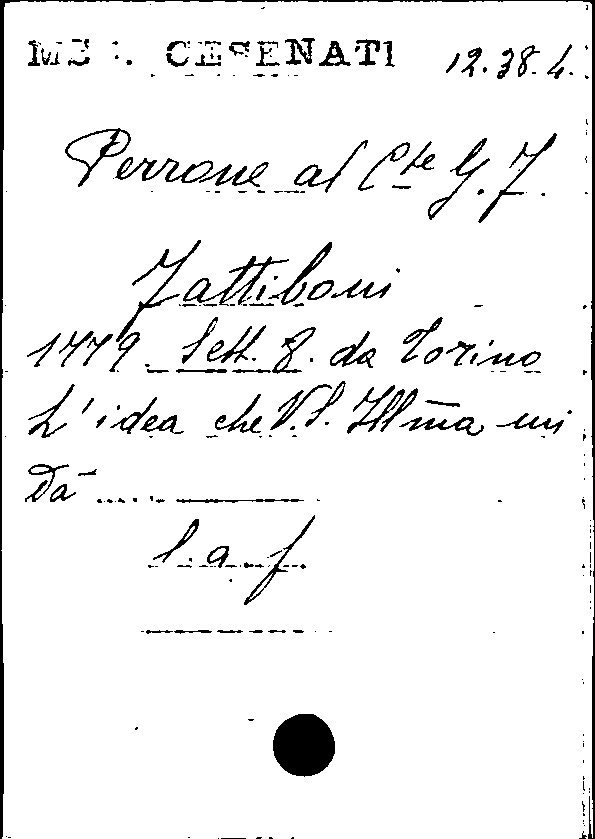 MSS. CESENATI 12.38.4.
Perrone al C.te G. F.
Fattiboni
1779 Sett. 8. da Torino
L'idea che V.S. Illma mi
dà ....
l. a. f.